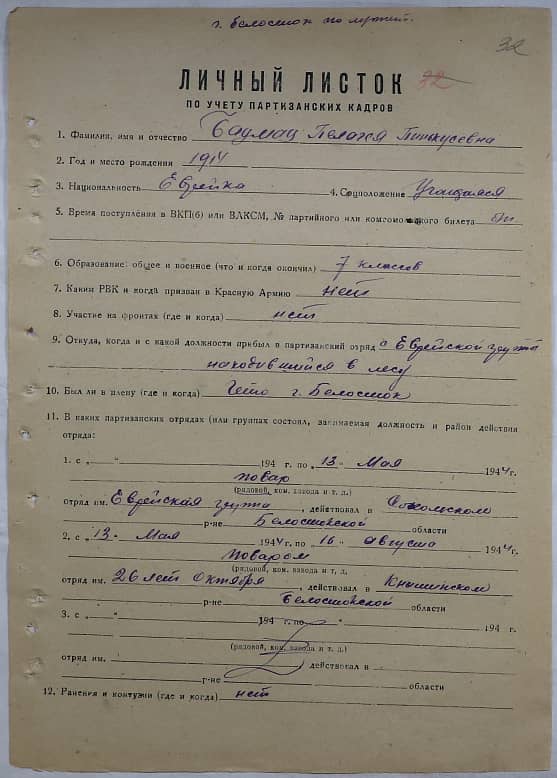 г. Белосток
32
ЛИЧНЫЙ ЛИСТОК 32
ПО УЧЕТУ ПАРТИЗАНСКИХ КАДРОВ
1. Фамилия, имя и отчество Бадмац Пелажя Пинкусевна
2. Год и место рождения 1914
3. Национальность Еврейка 4. Соцположение Учащаяся
5. Время поступления в ВКП(б) или ВЛКСМ, № партийного или комсомольского билета
6. Образование: общее и военное (что и когда окончил) 7 классов
7. Каким РВК и когда призван в Красную Армию нет
8. Участие на фронтах (где и когда) нет
9. Откуда, когда и с какой должности прибыл в партизанский отряд с Еврейской группы
находившийся в лесу
10. Был ли в плену (где и когда) Гето г. Белосток
11. В каких партизанских отрядах (или группах состоял, занимаемая должность и район действия
отряда:
1. с „ “ 194 г. по „13. Мая 1944г.
повар
(рядовой, ком. взвода и т. д.)
отряд им. Еврейская група, действовал в Сокольском
р-не Белостокской области
2. с „13. Мая 1944г. по „16 августа 1944г.
поваром
(рядовой, ком. взвода и т. д.
отряд им. 26 лет Октября, действовал в Кнышинском
р-не Белостокской области
3. с „ “ 194 г. по „ “ 194 г.
(рядовой, ком. взвода и т. д.)
отряд им. действовал в
г-не области
12. Ранения и контузии (где и когда) нет